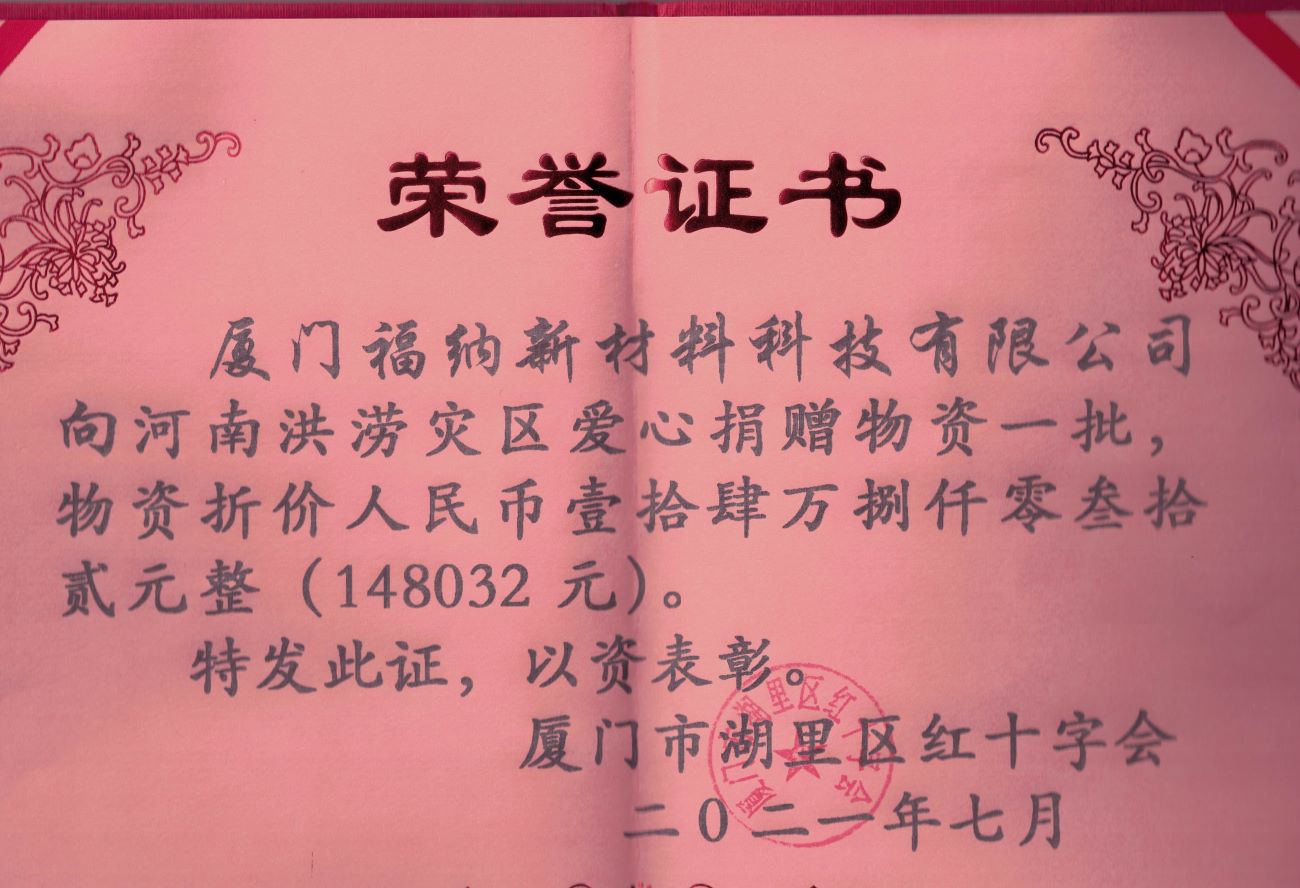 荣誉证书
厦门福纳新材料科技有限公司
向河南洪涝灾区爱心捐赠物资一批，
物资折价人民币壹拾肆万捌仟零叁拾
贰元整（148032 元）。
特发此证，以资表彰。
厦门市湖里区红十字会
二0二一年七月
厦门市湖里区红十字会